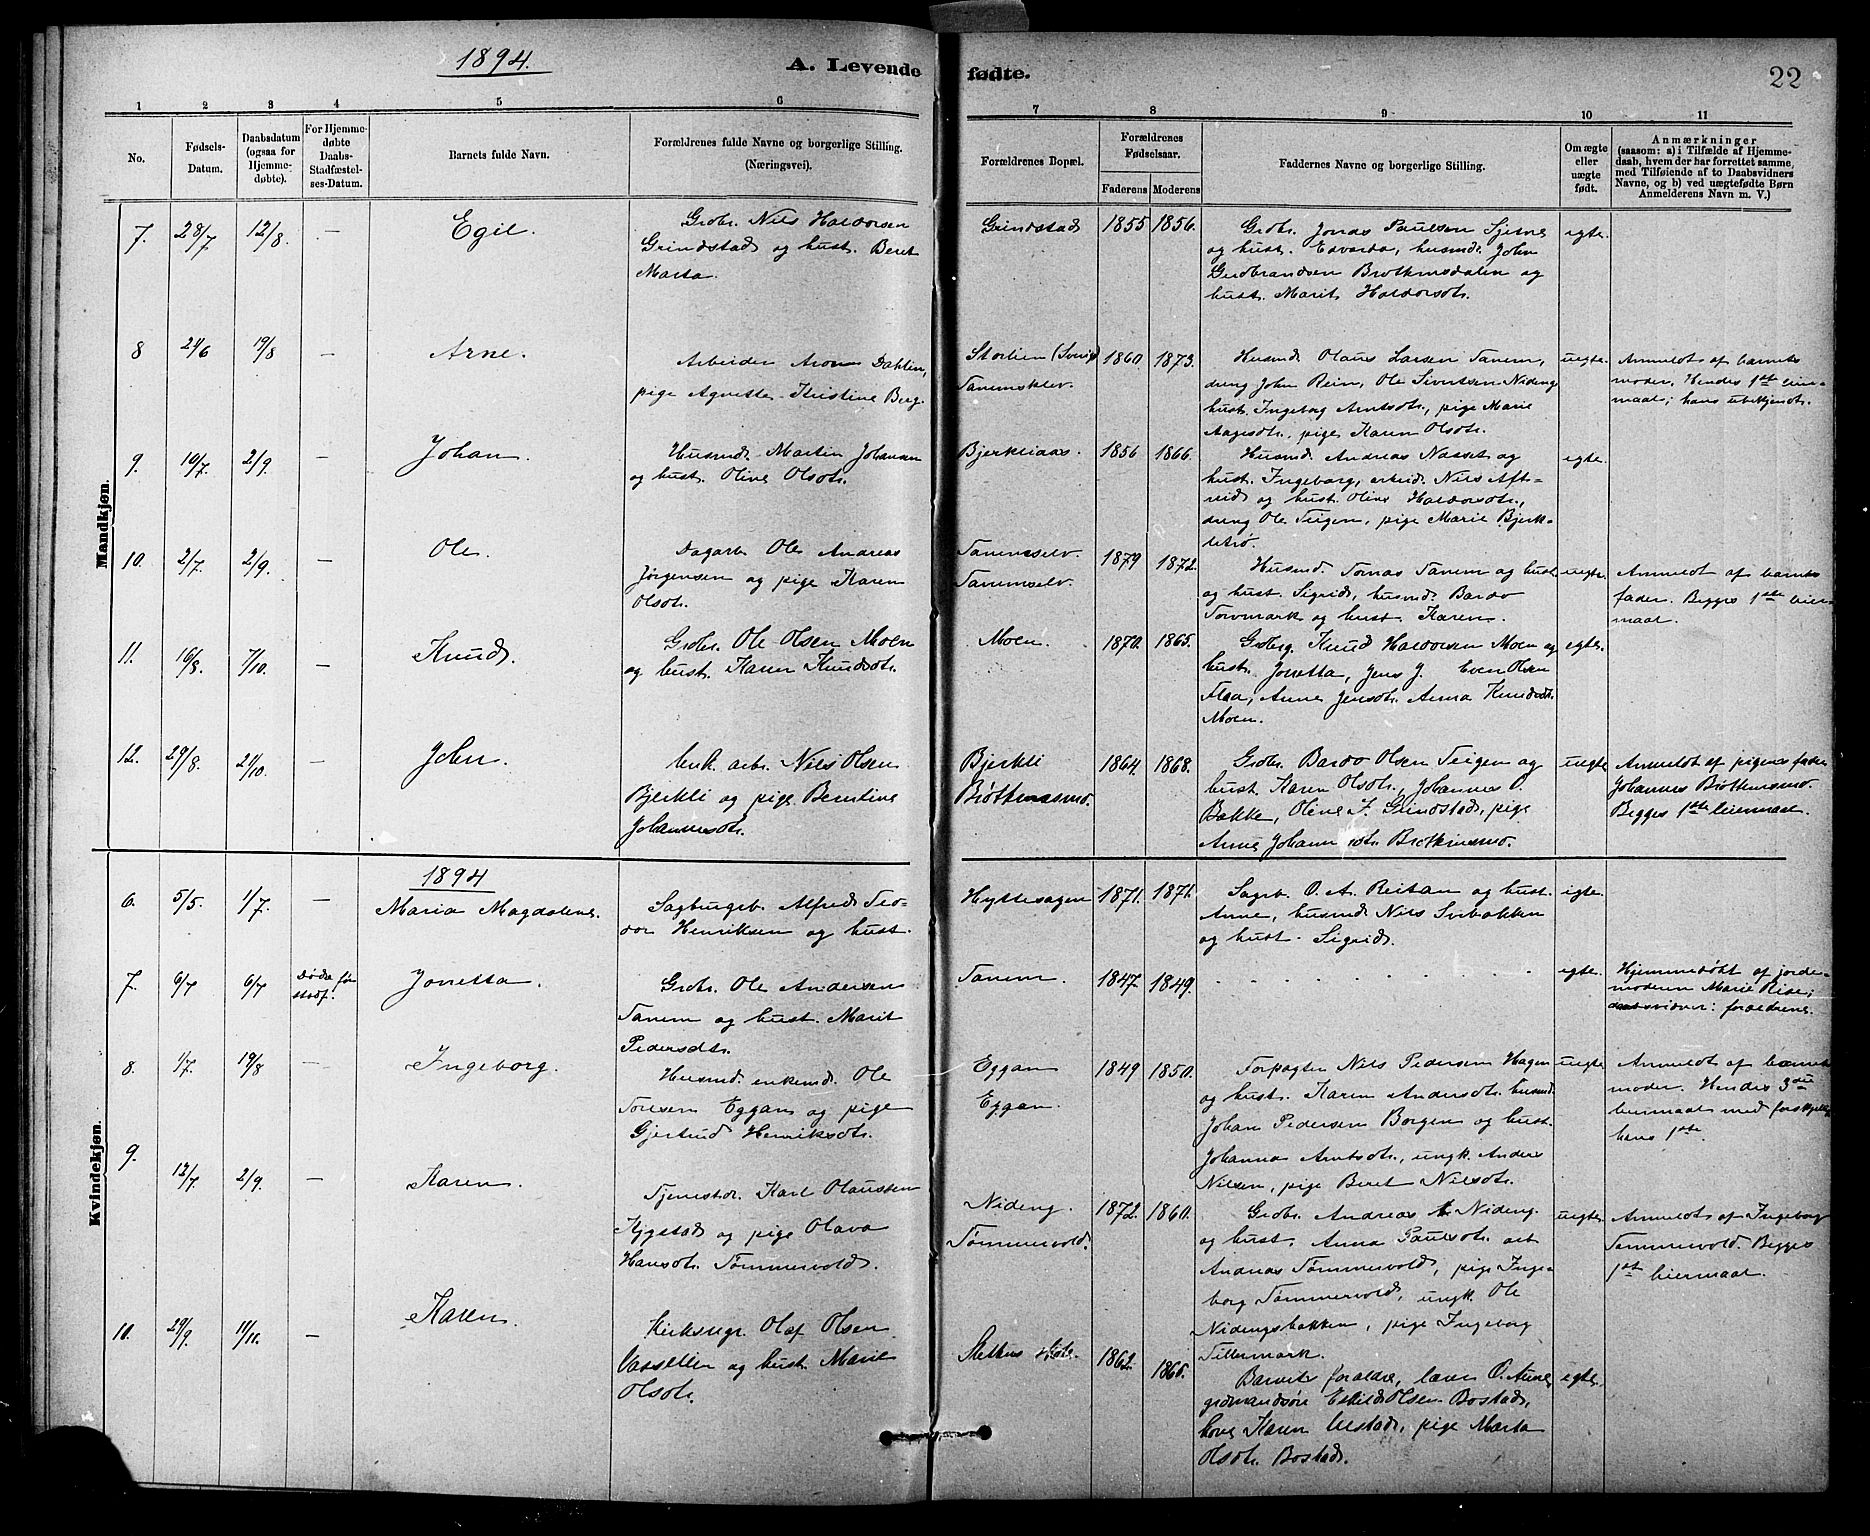 1894.
A. Levende
fødte.
22
1
2
3
4
5
6
7
8
9
10
11
No.
Fødsels-
Datum.
Daabsdatum
(ogsaa for
Hjemme-
døbte).
For Hjemme-
døbte
Daabs-
Stadfæstel-
ses-Datum.
Barnets fulde Navn.
Forældrenes fulde Navne og borgerlige Stilling.
(Næringsvei).
Forældrenes Bopæl.
Forældrenes
Fødselsaar.
Faderens
Moderens
Faddernes Navne og borgerlige Stilling.
Om ægte
eller
uægte
født.
Anmærkninger
(saasom: a) i Tilfælde af Hjemme-
daab, hvem der har forrettet samme,
med Tilføiende af to Daabsvidners
Navne, og b) ved uægtefødte Børn
Anmelderens Navn m. V.)
Mandkjøn.
7. 28/7 12/8. — Egil
Grdbr. Nils Haldorsen
Grindstad og hust. Beret
Marta.
Grindstad 1855 1856.
Grdbr. Jonas Paulsen Sjetne
og hust. Edvarda, husmd. John
Gudbrandsen Brøtkinsdalen og
hust. Marit Haldorsdt.
egte.
8 24/6 19/8 — Arne.
Arbeider Aron Dahlin,
pige Agnette Kristine Berg.
Storlien
Tanemsklev. 1860. 1873.
Husmd. Olaus Larsen Tanem,
dreng John Rein, Ole Sivertsen Nideng
hust. Ingeborg Arntsdt., pige Marie
Aagesdt., pige Karen Olsdt.
uegte.
Anmeldt af barnets
moder. Hendes 1ste leier-
maal; hans ubekjendt.
9. 10/7. 2/9. — Johan.
Husmd. Martin Johansen
og hust. Oline Olsdt.
Bjerkliaas. 1856 1866.
Husmd. Andreas Nasset og
hust. Ingeborg, arbeid. Nils Aft-
reid og hust. Oline Haldorsdt.,
dreng Ole Teigen, pige Marie Bjerk-
letrø.
egte.
10. 2/7. 2/9. — Ole.
Dagarb. Ole Andreas
Jørgensen og pige Karen
Olsdt.
Tanemselv.
Tanemselv. 1879 1872.
Husmd. Tomas Tanem og hust
og hust. Sigrid, husmd. Bardo
Torvmark og hust. Karen.
uegte.
Anmeldt af barnets
fader. Begges 1ste leier-
maal.
11. 16/8 7/10. — Knud.
Grdbr. Ole Olsen Moen
og hust. Karen Knudsdt.
Moen. 1870. 1865.
Grdbrg. Knud Haldorsen Moen og
hust. Jonetta, Jens J. Even Olsen
Flaa, Anne Jensdt. Anna Knudsdt.
Moen.
egte.
12. 29/8. 21/10. — John.
Unk. arbr. Nils Olsen
Bjerkli og pige Berntine
Johannesdt.
Bjerkli
Brøtkinsmo. 1864. 1868.
Grdbr. Bardo Olsen Teigen og
hust. Karen Olsdt., Johannes O.
Bække, Oline J. Grindstad, pige
Anne Johannesdt. Brøtkinsmo.
uegte
Anmeldt af pigens fader
Johannes Brøtkinsmo.
Begges 1ste leiermaal.
Kvindekjøn.
1894
6. 5/5. 1/7. — Maria Magdalene.
Sagbrugsb. Alfred Teo-
dor Henriksen og hust.
Hyttesagen 1871. 1871.
Sagb. O. A. Reitan og hust.
Anne, husmd. Nils Svebakken
og hust. Sigrid.
egte.
7. 6/7 6/7 Døde før
stadf.! Jonetta.
Grdbr. Ole Andersen
Tanem og hust. Marit
Pedersdt.
Tanem 1847 1849.
egte.
Hjemmedøbt af jorde-
modern Marie Rise;
daabsvidner: forældrene.
8. 1/7. 19/8 — Ingeborg.
Husmd. enkemd. Ole
Toresen Eggan og pige
Gjertrud Henriksdt.
Eggan
Eggan. 1849 1850.
Forpagter Nils Pedersen Hagen
og hust. Karen Andersdt. husmd.
Johan Pedersen Borgen og hust.
Johanna Arntsdt., ungk. Anders
Nilsen, pige Beret Nilsdt.
uegte
Anmeldt af barnets
moder. Hendes 3die
leiermaal med forskjellige
hans 1ste.
9. 12/7. 2/9. — Karen.
Tjenestdr. Karl Olaussen
Kjystad og pige Olava
Hansdt. Tømmervold.
Nideng.
Tømmervold. 1872. 1860.
Grdbr. Andreas Nideng
og hust. Anna Paulsdt. arb
Andreas Tømmervold, pige Inge-
borg Tømmervold, ungk. Ole
Nidengsbakken, pige Ingeborg
Tillermark.
uegte.
Anmeldt af Ingeborg
Tømmervold. Begges
1ste leiermaal.
10. 29/9. 11/11. — Karen.
Kirkesngr. Olaf Olsen
Vasseller og hust. Marie
Olsdt.
1862. 1865.
Barnets forældre, lærer O. Aune,
grdmandsøn Eskild Olsen Bostad,
kone Karen Ustad, pige Marta
Olsdt. Bostad.
egte.